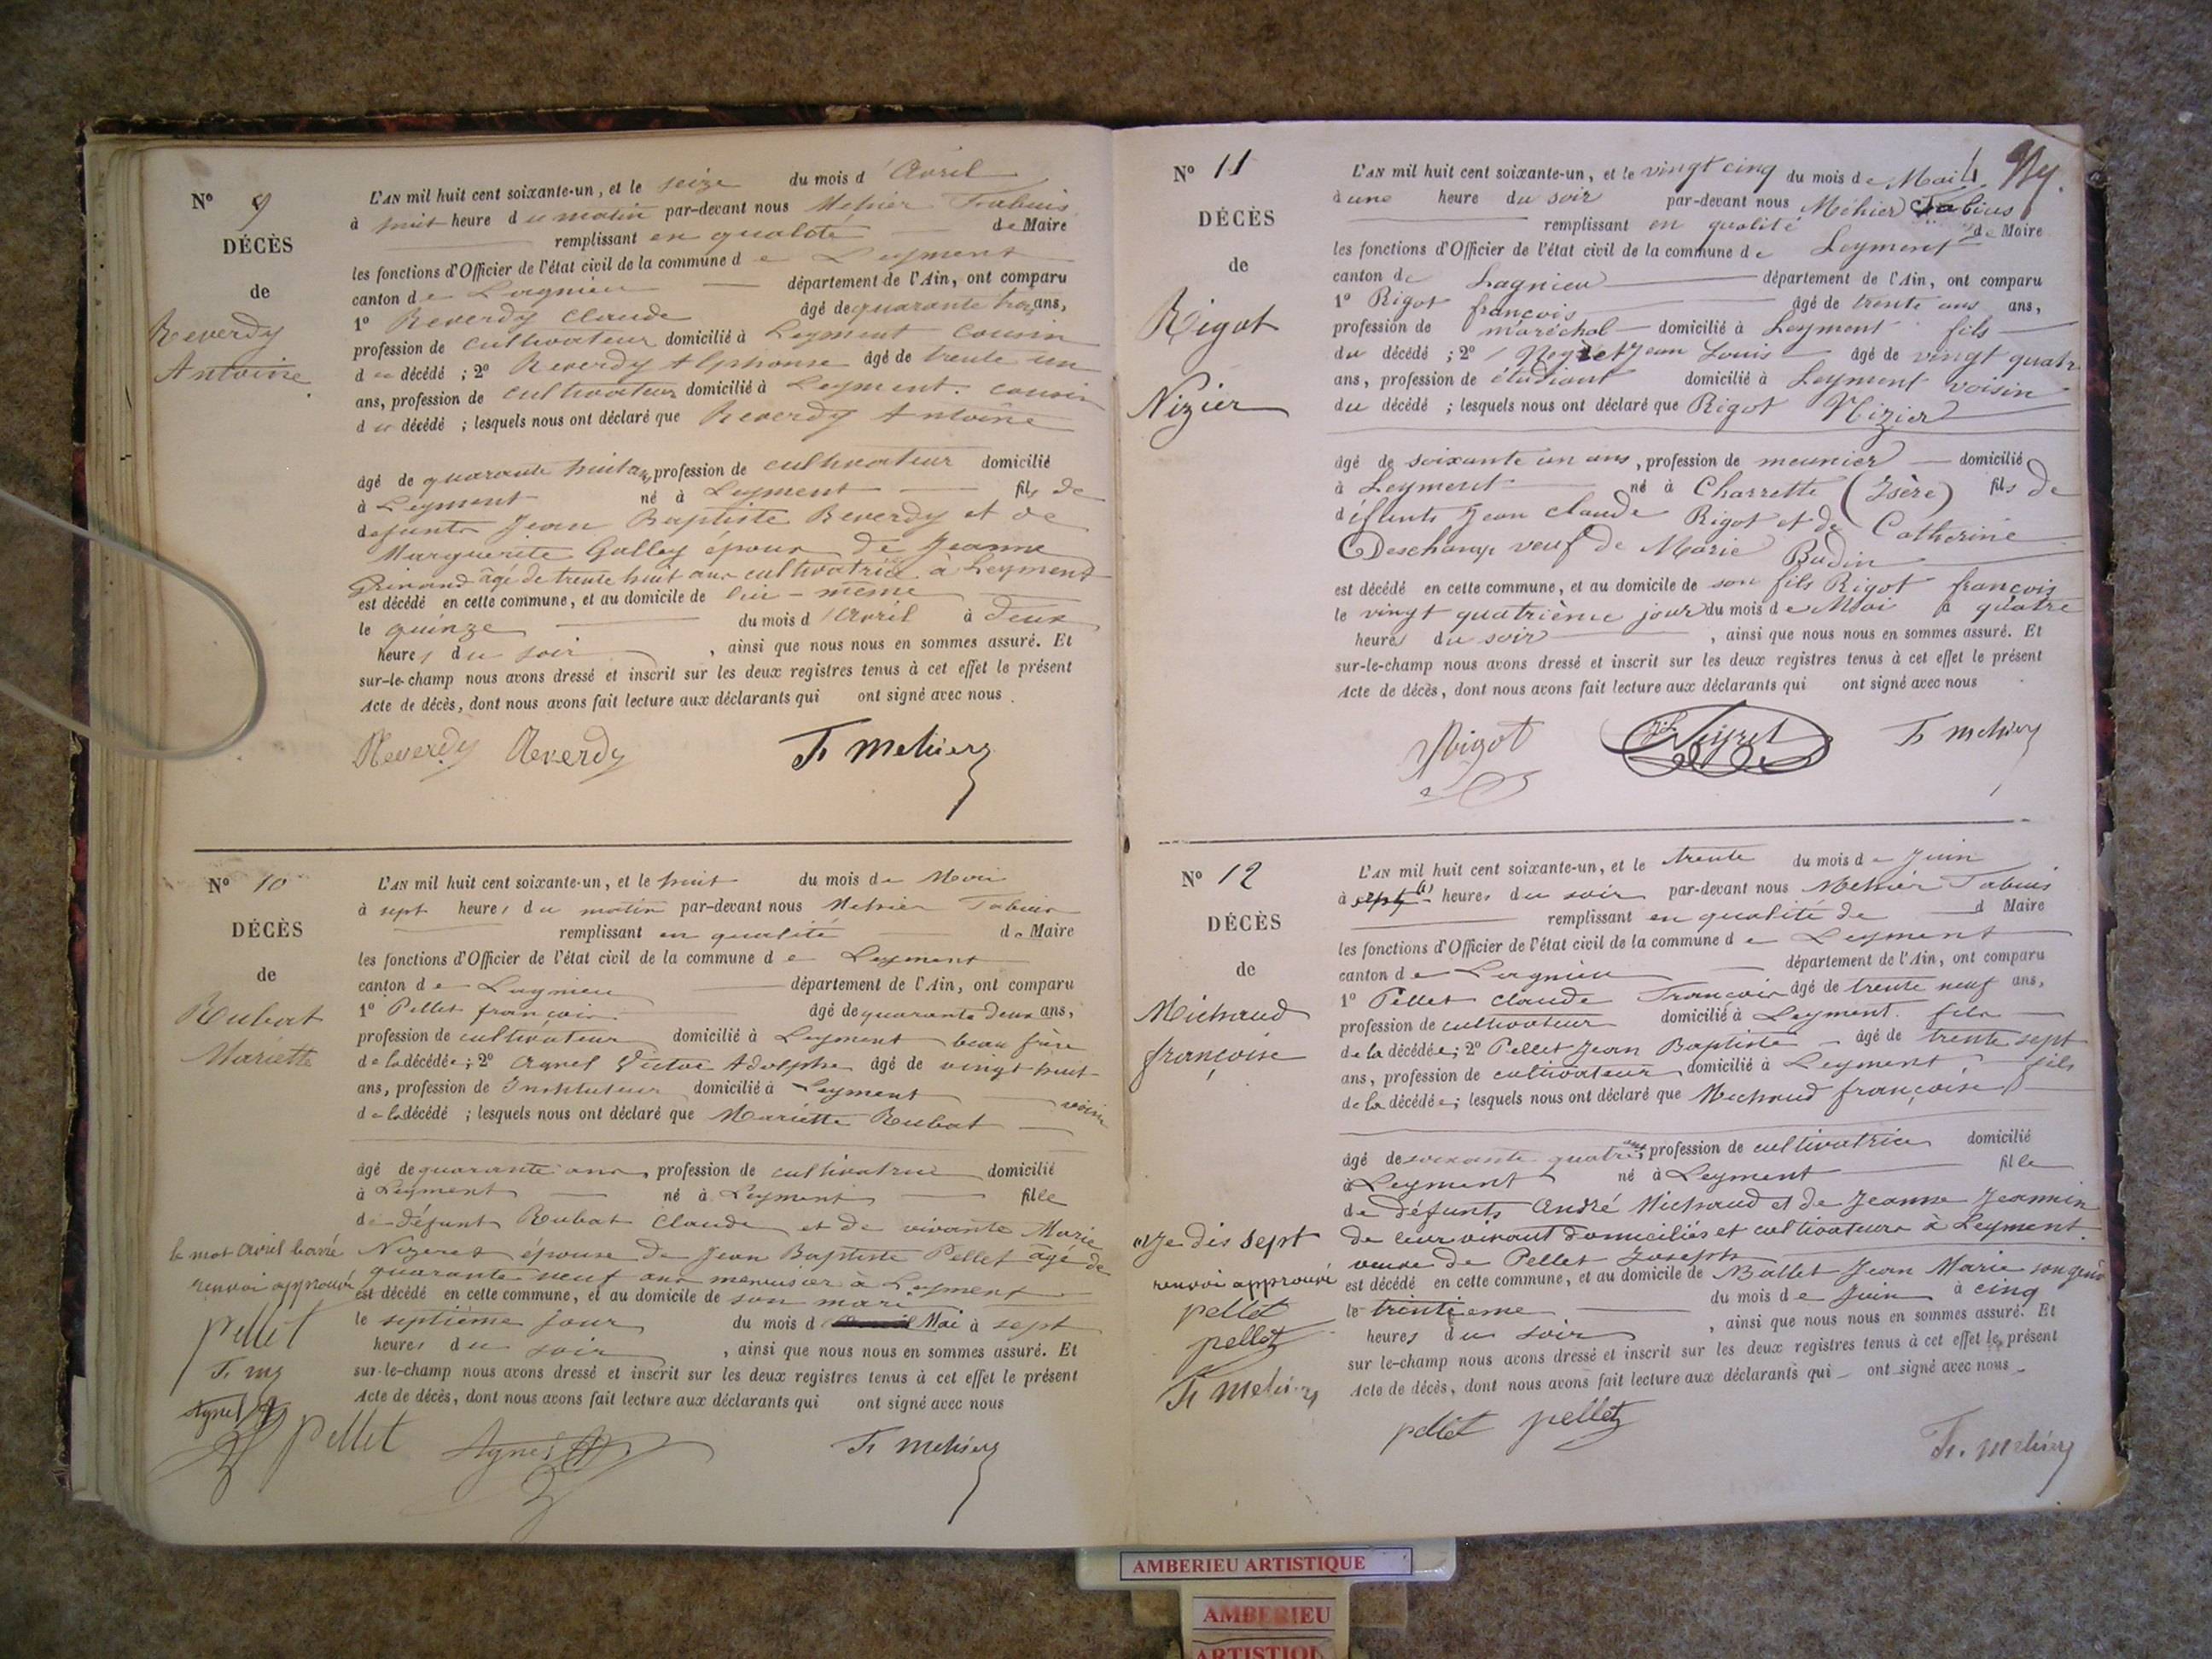 Nº 9
DÉCÈS
de
Reverdy
Antoine
L'AN mil huit cent soixante-un, et le seize du mois d'Avril
à huit heure du matin par-devant nous Mehier Fabius
remplissant en qualité de Maire
les fonctions d'Officier de l'état civil de la commune de Leyment
canton de Lagnieu département de l'Ain, ont comparu
1º Reverdy Claude âgé de quarante trois ans,
profession de cultivateur domicilié à Leyment cousin
du décédé ; 2º Reverdy Alphonse âgé de trente un
ans, profession de cultivateur domicilié à Leyment. cousin
du décédé ; lesquels nous ont déclaré que Reverdy Antoine
âgé de quarante huit ans, profession de cultivateur domicilié
à Leyment né à Leyment fils de
defunts Jean Baptiste Reverdy et de
Marguerite Galley époux de Jeanne
âgé de trente huit ans cultivatrice à Leyment
est décédé en cette commune, et au domicile de lui-même
le quinze du mois d'Avril à deux
heures du soir , ainsi que nous nous en sommes assuré. Et
sur-le-champ nous avons dressé et inscrit sur les deux registres tenus à cet effet le présent
Acte de décès, dont nous avons fait lecture aux déclarants qui ont signé avec nous.
Reverdy Reverdy Fs Mehier
Nº 10
DÉCÈS
de
Rubat
Mariette
L'AN mil huit cent soixante-un, et le huit du mois de Mai
à sept heures du matin par-devant nous Mehier Fabius
remplissant en qualité de Maire
les fonctions d'Officier de l'état civil de la commune de Leyment
canton de Lagnieu département de l'Ain, ont comparu
1º Pellet françois âgé de quarante deux ans,
profession de cultivateur domicilié à Leyment beau frère
de la décédée ; 2º Agnel Victor Adolphe âgé de vingt huit
ans, profession de Instituteur domicilié à Leyment voisin
de la décédé ; lesquels nous ont déclaré que Mariette Rubat
âgé de quarante ans, profession de cultivatrice domicilié
à Leyment né à Leyment fille
de défunt Rubat Claude et de vivante Marie
Nizeret épouse de Jean Baptiste Pellet âgé de
quarante neuf ans menuisier à Leyment
est décédé en cette commune, et au domicile de son mari
le septième jour du mois d Avril Mai à sept
heures du soir , ainsi que nous nous en sommes assuré. Et
sur-le-champ nous avons dressé et inscrit sur les deux registres tenus à cet effet le présent
Acte de décès, dont nous avons fait lecture aux déclarants qui ont signé avec nous
le mot Avril barré
renvoi approuvé
Pellet
Agnel
Pellet Agnel Fs Mehier
Nº 11
DÉCÈS
de
Rigot
Nizier
L'AN mil huit cent soixante-un, et le vingt cinq du mois de Mai
à une heure du soir par-devant nous Méhier Fabius
remplissant en qualité de Maire
les fonctions d'Officier de l'état civil de la commune de Leyment
canton de Lagnieu département de l'Ain, ont comparu
1º Rigot françois âgé de trente ans ans,
profession de maréchal domicilié à Leyment fils
du décédé ; 2º Neyret Jean Louis âgé de vingt quatre
ans, profession de étudiant domicilié à Leyment voisin
du décédé ; lesquels nous ont déclaré que Rigot Nizier
âgé de soixante un ans, profession de meunier domicilié
à Leyment né à Charrette (Isère) fils de
défunts Jean Claude Rigot et de Catherine
Deschamp veuf de Marie Budin
est décédé en cette commune, et au domicile de son fils Rigot françois
le vingt quatrième jour du mois de Mai à quatre
heures du soir , ainsi que nous nous en sommes assuré. Et
sur-le-champ nous avons dressé et inscrit sur les deux registres tenus à cet effet le présent
Acte de décès, dont nous avons fait lecture aux déclarants qui ont signé avec nous
Rigot Neyret Fs Mehier
Nº 12
DÉCÈS
de
Michaud
françoise
L'AN mil huit cent soixante-un, et le trente du mois de Juin
à sept (1) heures du soir par-devant nous Mehier Fabius
remplissant en qualité de d Maire
les fonctions d'Officier de l'état civil de la commune de Leyment
canton de Lagnieu département de l'Ain, ont comparu
1º Pellet Claude François âgé de trente neuf ans,
profession de cultivateur domicilié à Leyment. fils
de la décédée ; 2º Pellet Jean Baptiste âgé de trente sept
ans, profession de cultivateur domicilié à Leyment fils
de la décédée ; lesquels nous ont déclaré que Michaud françoise
âgé de soixante quatre ans, profession de cultivatrice domicilié
à Leyment né à Leyment fille
de défunts André Michaud et de Jeanne Jeannin
de leur vivant domiciliés et cultivateurs à Leyment.
veuve de Pellet Joseph
est décédé en cette commune, et au domicile de Ballet Jean Marie son gendre
le trentieme du mois de Juin à cinq
heures du soir , ainsi que nous nous en sommes assuré. Et
sur le-champ nous avons dressé et inscrit sur les deux registres tenus à cet effet le présent
Acte de décès, dont nous avons fait lecture aux déclarants qui ont signé avec nous
(1) Je dis sept
renvoi approuvé
pellet
pellet
Fs Mehier
pellet pellet Fs. Mehier
AMBERIEU ARTISTIQUE
AMBERIEU
ARTISTIQU